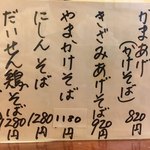 かまあげ
(かけそば) 820円
きざみあげそば 920円
やまかけそば 1180円
にしんそば 1280円
だいせん鶏そば 1280円